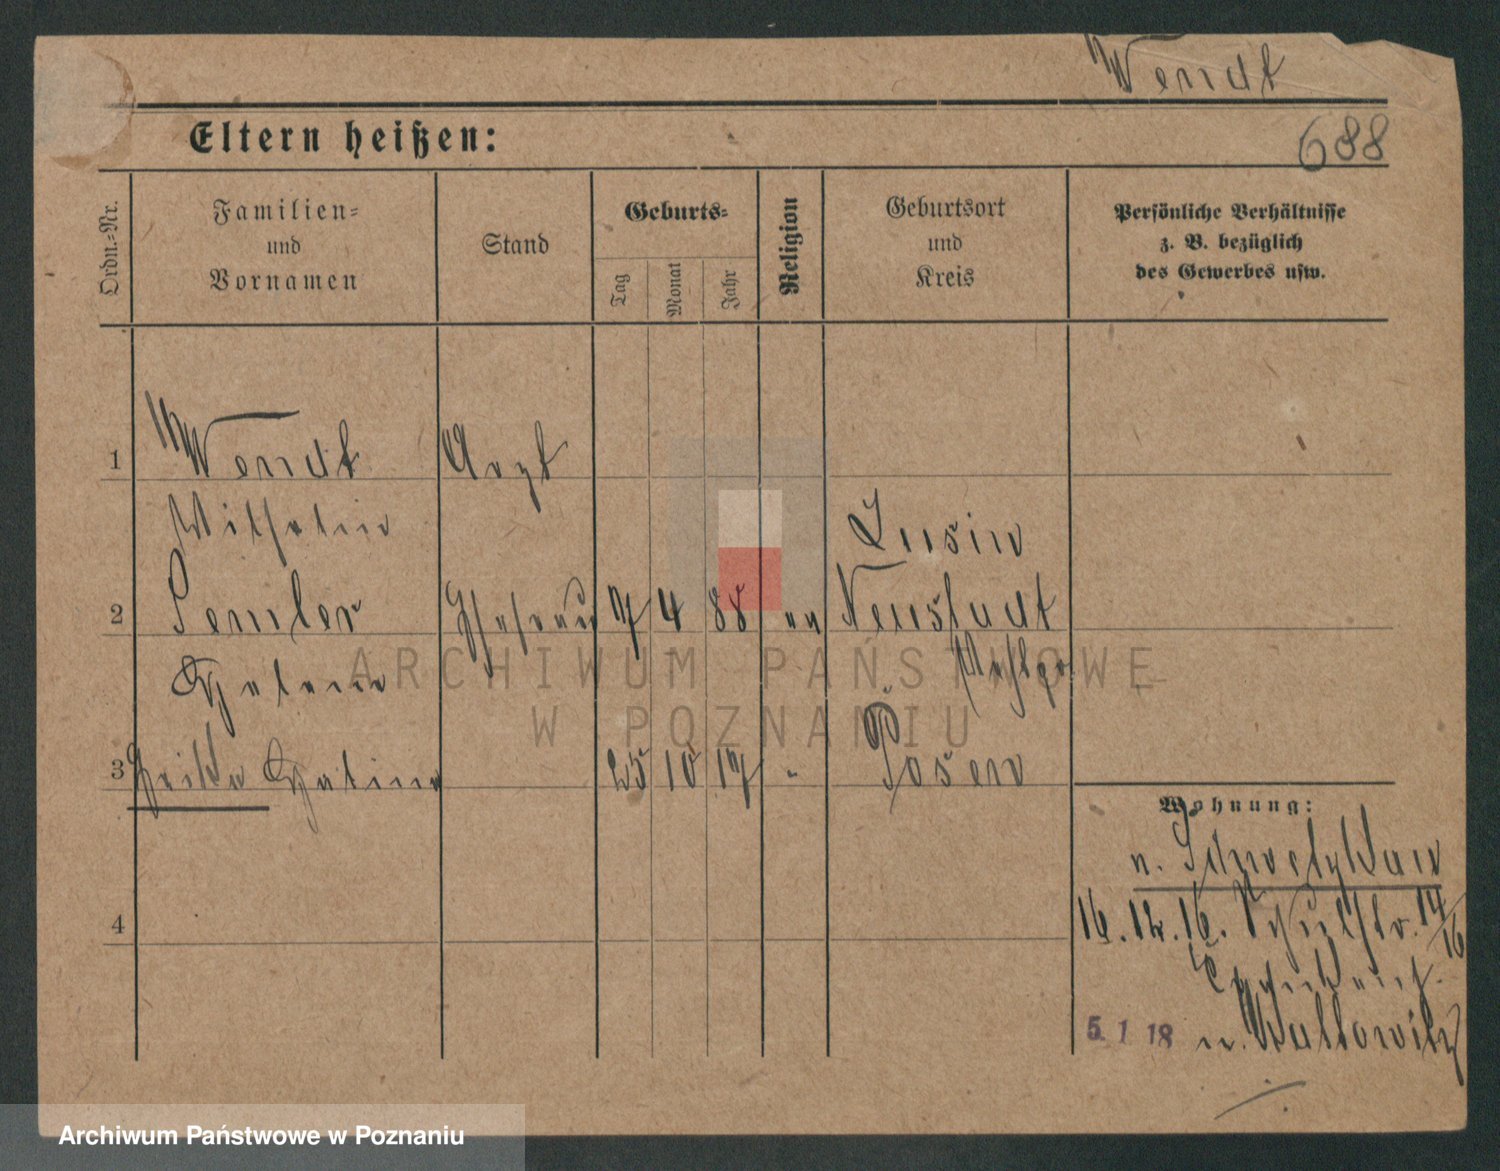 Wendt
Eltern heißen:
688
Ordn.-Nr.
Familien-
und
Vornamen
Stand
Geburts-
Tag
Monat
Jahr
Religion
Geburtsort
und
Kreis
Persönliche Verhältnisse
z. B. bezüglich
des Gewerbes usw.
1
Wendt
Arzt
Wilhelm
Lusin
2
Semler
Ehefrau
7
4
88
Neustadt
Helene
Westpr.
ARCHIWUM PAŃSTWOWE
W POZNANIU
3
25
10
17
Posen
Wohnung:
n.
16. 12. 16.
14/16
4
5. 1 18
n.
Archiwum Państwowe w Poznaniu